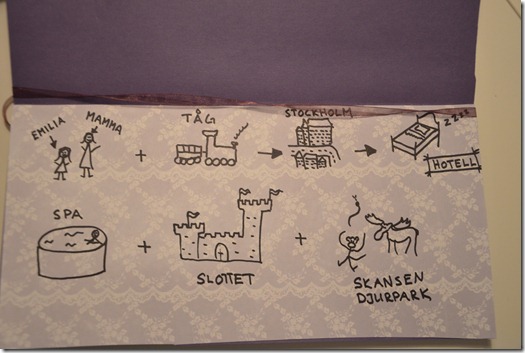 EMILIA MAMMA
TÅG
STOCKHOLM
ZZZZ
HOTELL
SPA
SLOTTET
SKANSEN
DJURPARK